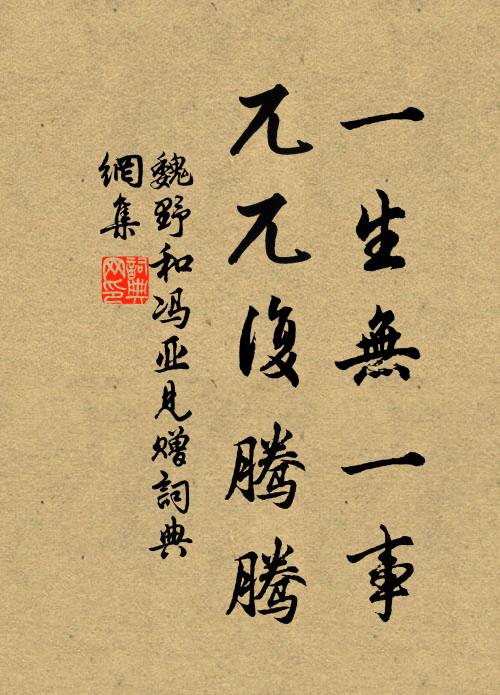 一生無一事
兀兀復騰騰
魏野和冯亚见赠詞典
網集
詞典網印